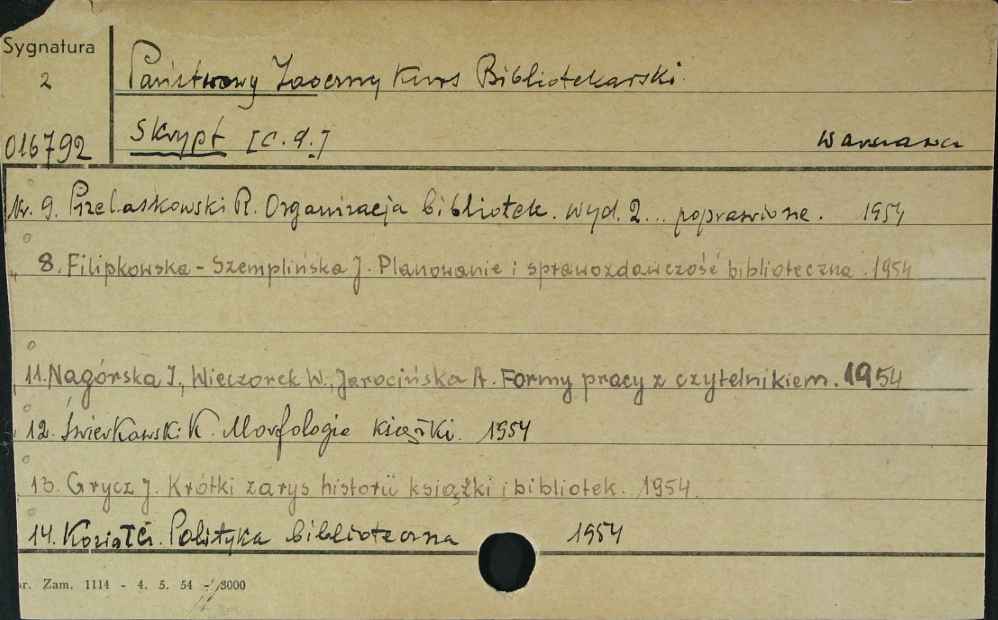 Sygnatura
2
016792
Państwowy Zaoczny Kurs Bibliotekarski
Skrypt [c.d.]
Warszawa
Nr. 9. Przelaskowski R. Organizacja bibliotek. wyd. 2... poprawione. 1954
„ 8. Filipkowska-Szemplińska J. Planowanie i sprawozdawczość biblioteczna. 1954
11. Nagórska I., Wieczorek W., Jarocińska A. Formy pracy z czytelnikiem. 1954
„ 12. Świerkowski K. Morfologia książki. 1954
13. Grycz J. Krótki zarys historii książki i bibliotek. 1954.
14. Polityka biblioteczna 1954
r. Zam. 1114 - 4. 5. 54 - 3000